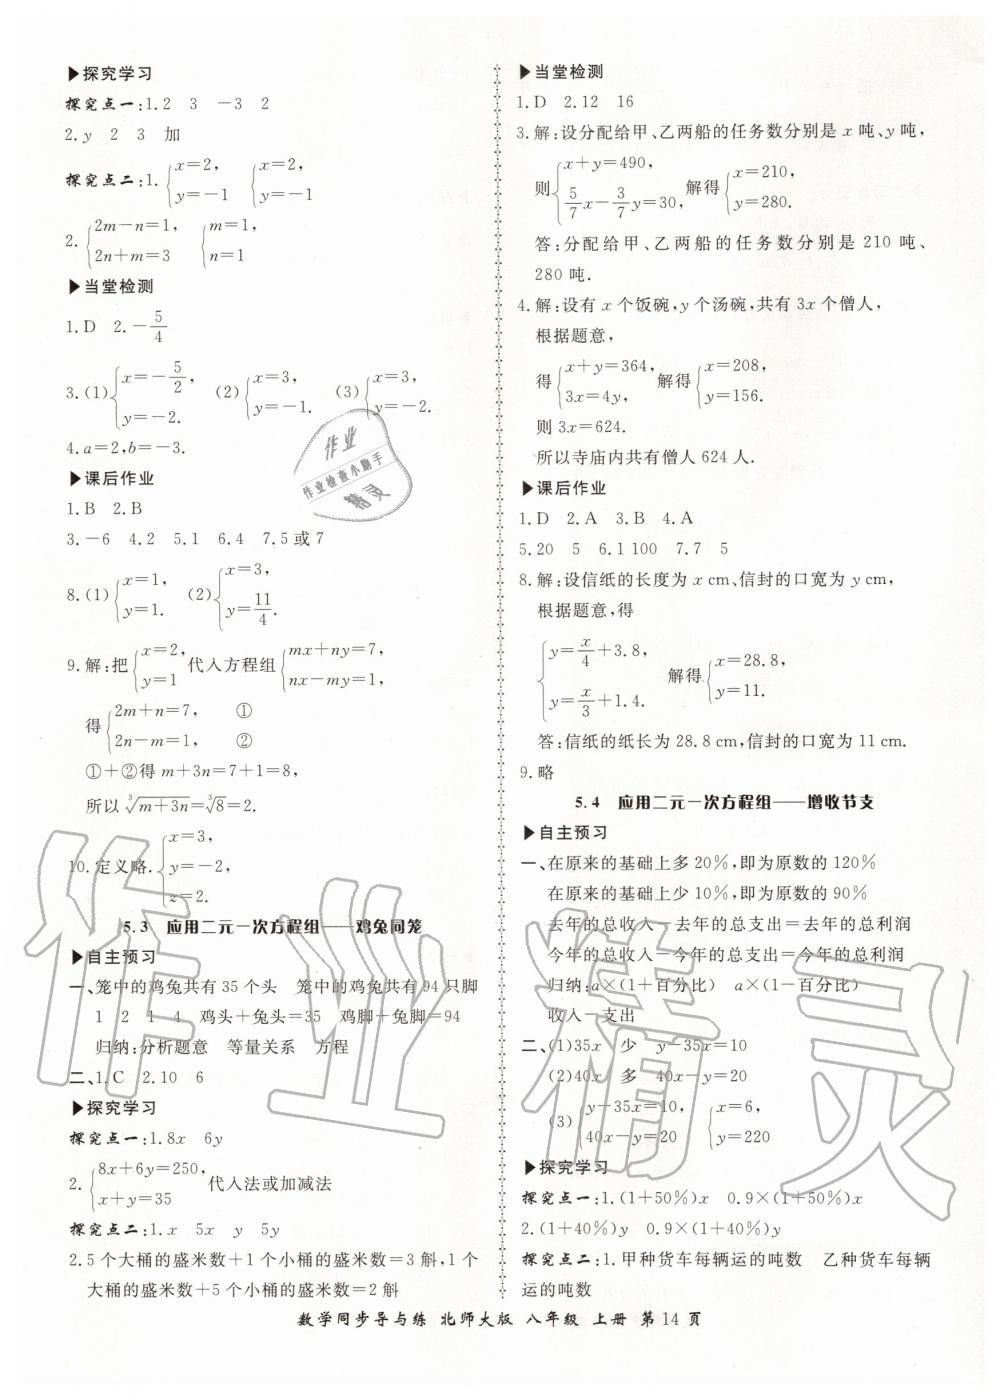 ▶探究学习
探究点一:1.2 3 －3 2
2.y 2 3 加
探究点二:1.{x=2, y=－1 {x=2, y=－1
2.{2m－n=1, 2n+m=3 {m=1, n=1
▶当堂检测
1.D 2.－5/4
3.(1){x=－5/2, y=－2. (2){x=3, y=－1. (3){x=3, y=－2.
4.a=2,b=－3.
▶课后作业
1.B 2.B
3.－6 4.2 5.1 6.4 7.5或7
8.(1){x=1, y=1. (2){x=3, y=11/4.
9.解:把{x=2, y=1 代入方程组{mx+ny=7, nx－my=1,
得{2m+n=7, ① 2n－m=1, ②
①+②得 m+3n=7+1=8,
所以∛(m+3n)=∛8=2.
10.定义略.{x=3, y=－2, z=2.
5.3 应用二元一次方程组——鸡兔同笼
▶自主预习
一、笼中的鸡兔共有35个头 笼中的鸡兔共有94只脚
1 2 1 4 鸡头+兔头=35 鸡脚+兔脚=94
归纳:分析题意 等量关系 方程
二、1.C 2.10 6
▶探究学习
探究点一:1.8x 6y
2.{8x+6y=250, x+y=35 代入法或加减法
探究点二:1.x 5x y 5y
2.5个大桶的盛米数+1个小桶的盛米数=3斛,1个
大桶的盛米数+5个小桶的盛米数=2斛
▶当堂检测
1.D 2.12 16
3.解:设分配给甲、乙两船的任务数分别是x吨、y吨,
则{x+y=490, 5/7x－3/7y=30, 解得{x=210, y=280.
答:分配给甲、乙两船的任务数分别是210吨、
280吨.
4.解:设有x个饭碗,y个汤碗,共有3x个僧人,
根据题意,
得{x+y=364, 3x=4y, 解得{x=208, y=156.
则3x=624.
所以寺庙内共有僧人624人.
▶课后作业
1.D 2.A 3.B 4.A
5.20 5 6.1 100 7.7 5
8.解:设信纸的长度为x cm、信封的口宽为y cm,
根据题意,得
{y=x/4+3.8, y=x/3+1.4. 解得{x=28.8, y=11.
答:信纸的纸长为28.8 cm,信封的口宽为11 cm.
9.略
5.4 应用二元一次方程组——增收节支
▶自主预习
一、在原来的基础上多20%,即为原数的120%
在原来的基础上少10%,即为原数的90%
去年的总收入－去年的总支出=去年的总利润
今年的总收入－今年的总支出=今年的总利润
归纳:a×(1+百分比) a×(1－百分比)
收入－支出
二、(1)35x 少 y－35x=10
(2)40x 多 40x－y=20
(3){y－35x=10, 40x－y=20 {x=6, y=220
▶探究学习
探究点一:1.(1+50%)x 0.9×(1+50%)x
2.(1+40%)y 0.9×(1+40%)y
探究点二:1.甲种货车每辆运的吨数 乙种货车每辆
运的吨数
数学同步导与练 北师大版 八年级 上册 第14页
作业
作业检查小助手
精灵
作业精灵